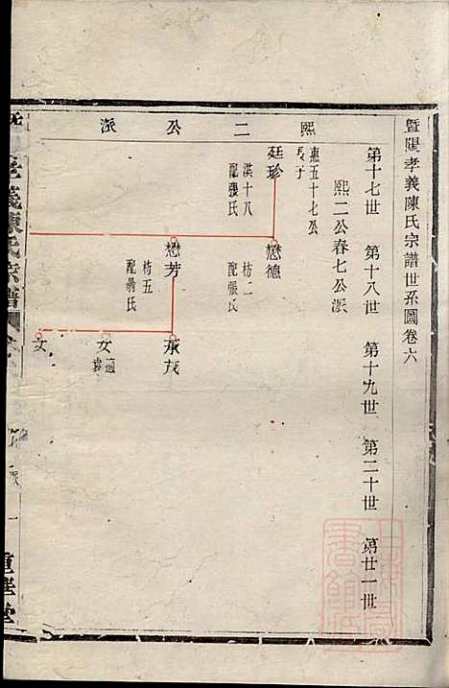 暨陽孝義陳氏宗譜世系圖卷六
熙二公派
第十七世 第十八世 第十九世 第二十世 第廿一世
熙二公春七公派
惠五十七公
長子
廷珍
淇十八
配張氏
懋德
枋二
配張氏
懋芳
枋五
配翁氏
承茂
女
適
女
孝義陳氏宗譜
重華堂